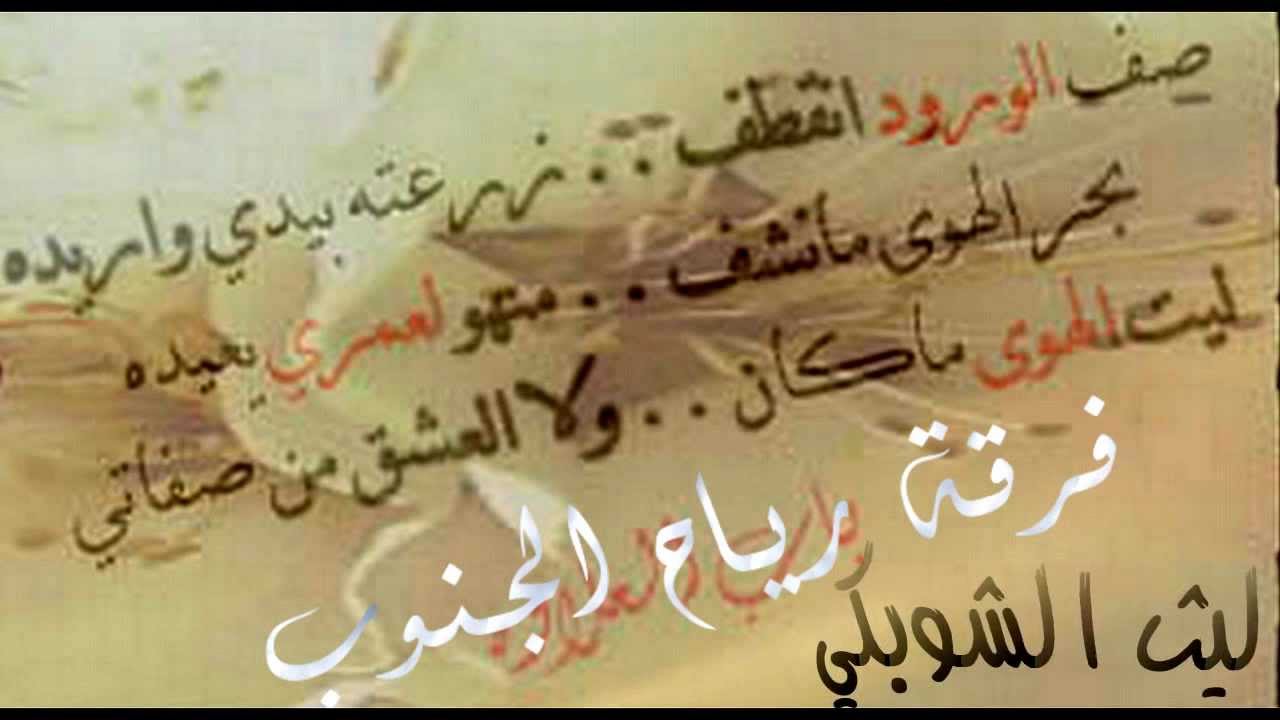 صف الورود انقطف . . زرعته بيدي واريده
بحر الهوى مانشف . . منهو لعمري يعيده
ليت الهوى ماكان . . ولا العشق من صفاتي
فرقة رياح الجنوب
ليث الشوبلي